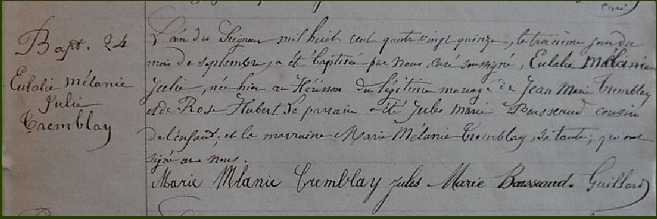 Curé
Bapt. 24
Eulalie mélanie
Julie
Tremblay
L'an du Seigneur mil huit cent quatre vingt quinze, le troisième jour du
mois de septembre, a été baptisée par nous, curé soussigné, Eulalie Mélanie
Julie, née hier au du légitime mariage de Jean Marie Tremblay
et de Rose Hubert. Le parrain a été Jules Marie Bousseaud cousin
de l'enfant, et la marraine Marie Mélanie Tremblay sa tante; qui ont
signé avec nous.
Marie Mlanie Tremblay Jules Marie Bousseaud Guillard